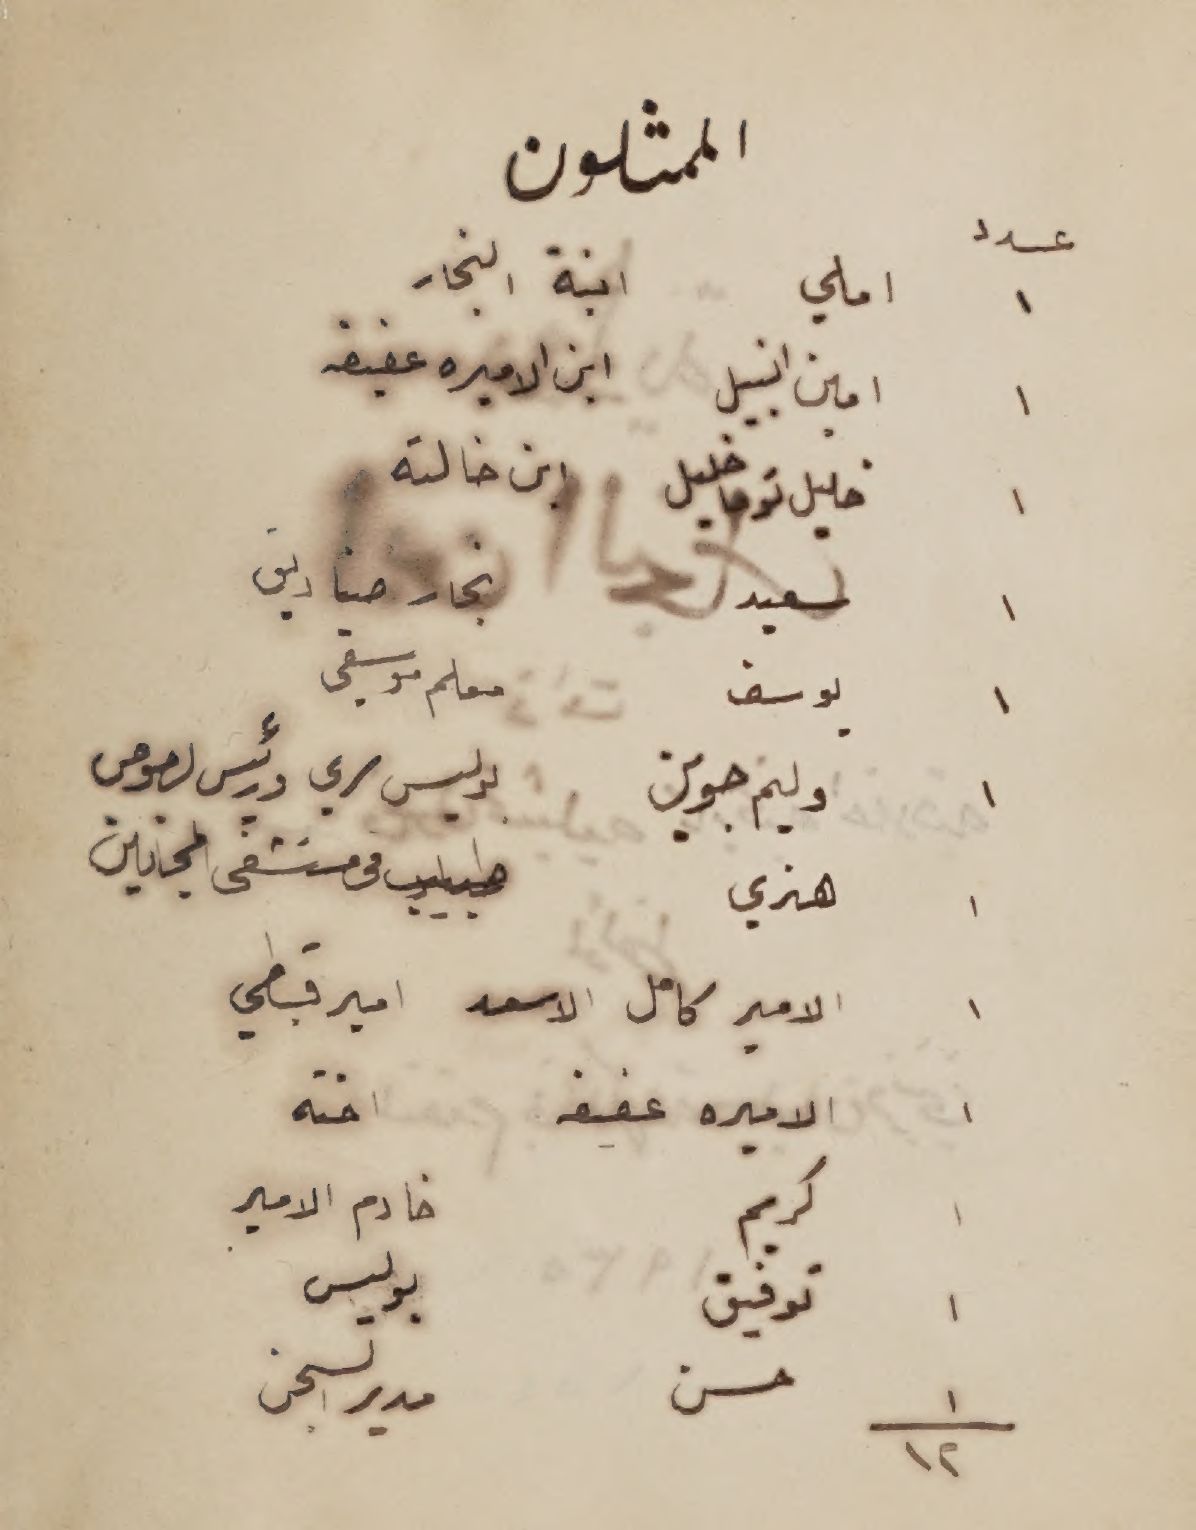 الممثلون
عدد
١ املي ابنة النجار
١ امين النبيل ابن الاميره عفيفه
١ خليل توما خليل ابن خالته
١ سعيد نجار صناديق
١ يوسف معلم موسيقى
١ وليم جوين بوليس سري ورئيس لصوص
١ هنري طبيب في مستشفى المجانين
١ الامير كامل الاسعد امير قبطي
١ الاميره عفيفه اخته
١ كريم خادم الامير
١ توفيق بوليس
١ حسن مدير السجن
١٢